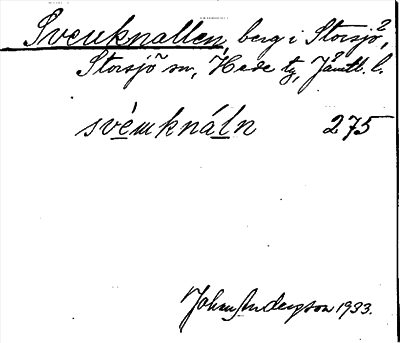 Svenknallen, berg i Storsjö,
Storsjö sn, Hede tg, Jämtl. l.
svémknáln 275
Johan Anderson 1933.